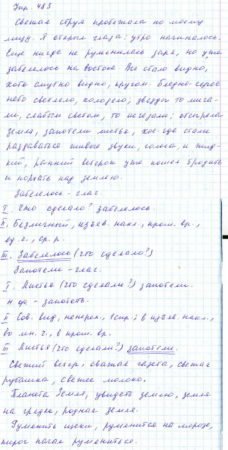 Упр. 483
Свежая струя пробежала по моему
лицу. Я открыл глаза: утро начиналось.
Еще нигде не румянилась заря, но уже
забелелось на востоке. Все стало видно,
хотя смутно видно, кругом. Бледно-серое
небо светлело, холодело, звезды то мига-
ли слабым светом, то исчезали; отсырела
земля, запотели листья, кое-где стали
раздаваться живые звуки, голоса и жид-
кий, ранний ветерок уже пошел бродить
и порхать над землею.
Забелелось - глаг.
I. Что сделало? забелелось
II. Безличный, изъяв. накл., прош. вр.,
ед. ч., ср. р.
III. Забелелось (что сделало?)
Запотели - глаг.
I. Листья (что сделали?) запотели.
Н. ф. - запотеть.
II Сов. вид, неперех., I спр.; в изъяв. накл.,
во мн. ч., в прош. вр.
III Листья (что сделали?) запотели.
Свежий ветер, свежая газета, свежая
рубашка, свежее молоко.
Планета Земля, увидеть землю, земля
на грядке, родная земля.
Румянить щеки, румяниться на морозе,
пирог начал румяниться.